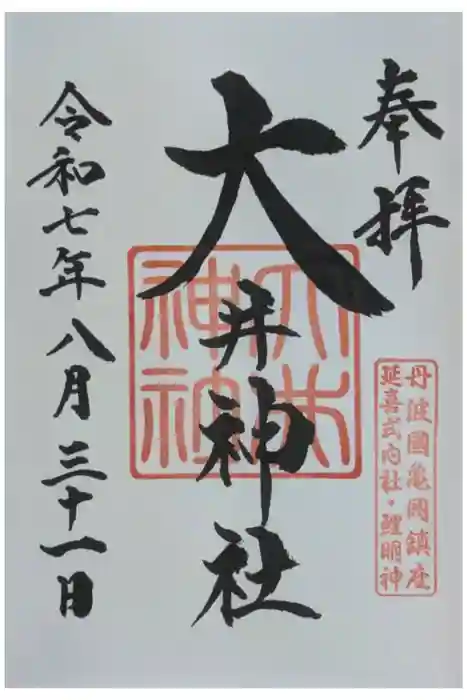 奉拝
丹波國亀岡鎮座
延喜式内社・鯉明神
大井神社
大井
神社
令和七年八月三十一日